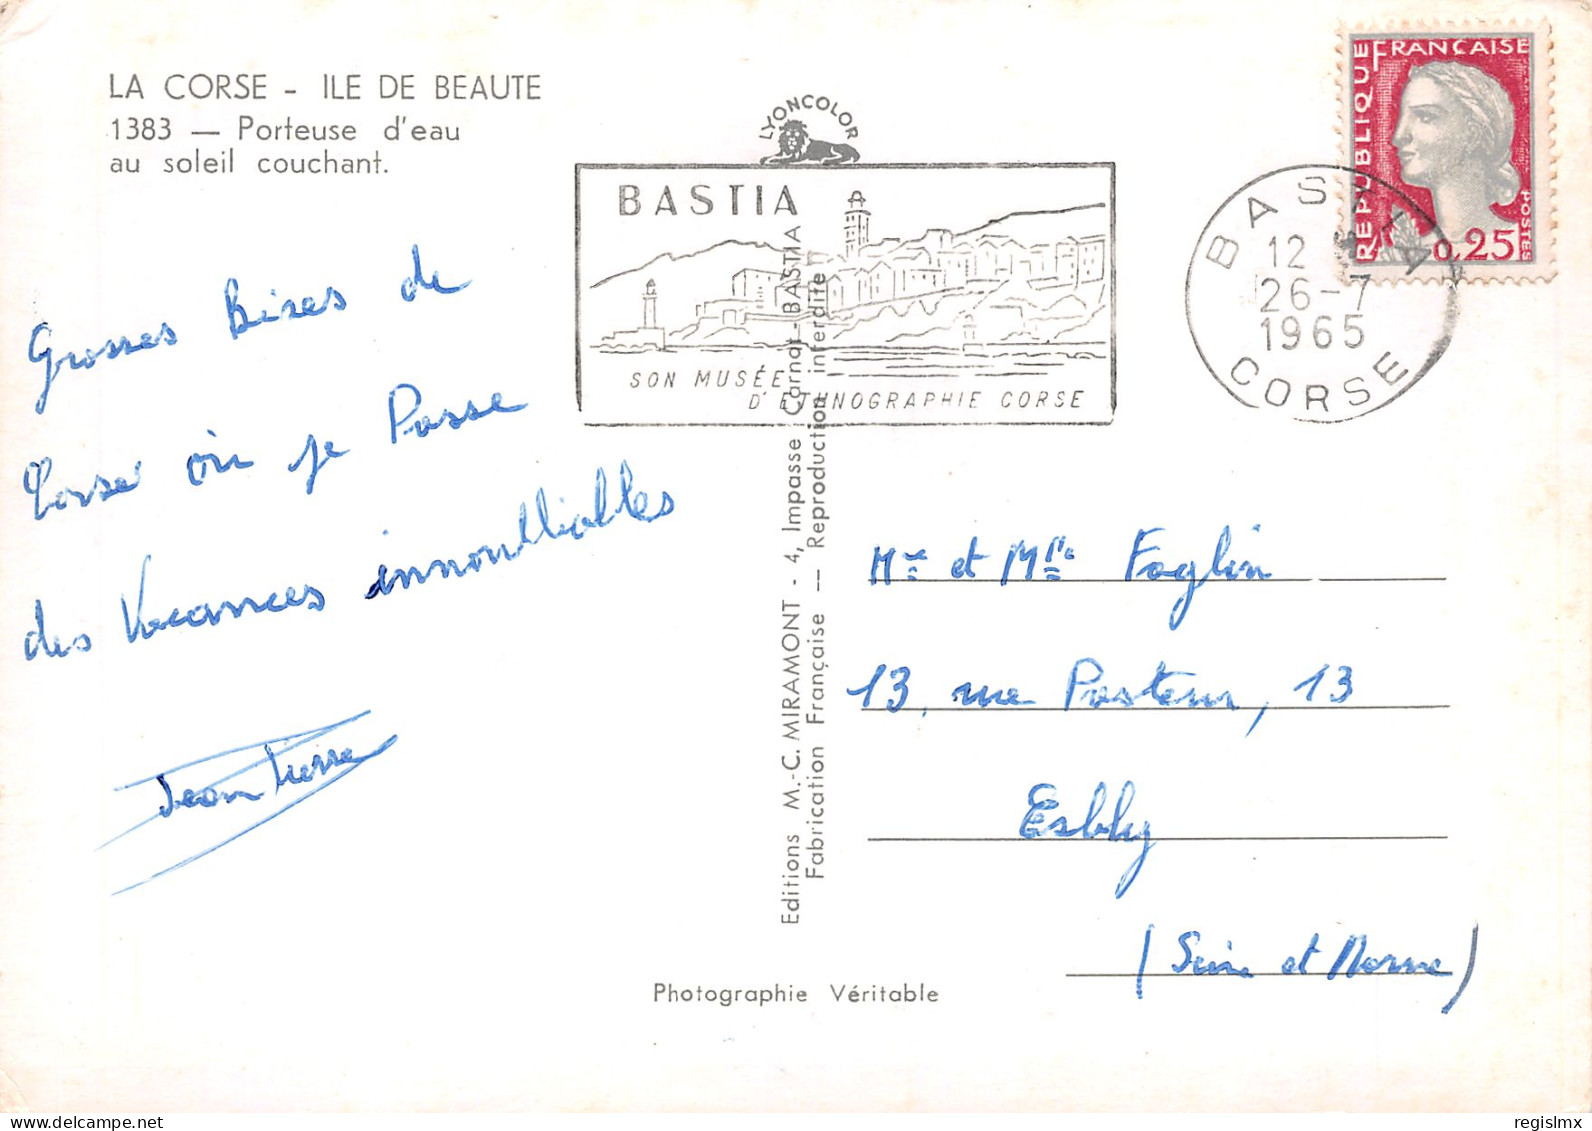 LA CORSE - ILE DE BEAUTE
1383 — Porteuse d'eau
au soleil couchant.
LYONCOLOR
BASTIA
SON MUSÉE
D'ETHNOGRAPHIE CORSE
BASTIA
12
26-7
1965
CORSE
REPUBLIQUE FRANÇAISE
POSTES
0,25
Grosses Bises de
Corse où je Passe
des Vacances innoubliables
Jean Pierre
Editions M.-C. MIRAMONT - 4, Impasse Carnot - BASTIA
Fabrication Française — Reproduction interdite
Mme et Mlle Foglin
13, rue Pasteur, 13
Esbly
(Seine et Marne)
Photographie Véritable
regislmx